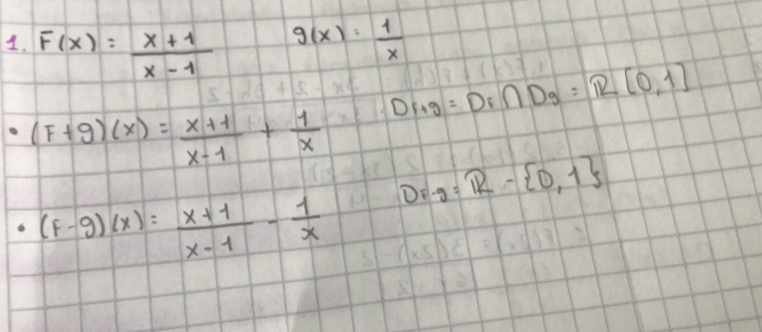 1. F(x) = x+1/x-1 g(x) = 1/x
• (F+g)(x) = x+1/x-1 + 1/x DF+g = DF ∩ Dg = ℝ [0,1]
• (F-g)(x) = x+1/x-1 - 1/x DF-g = ℝ - {0,1}